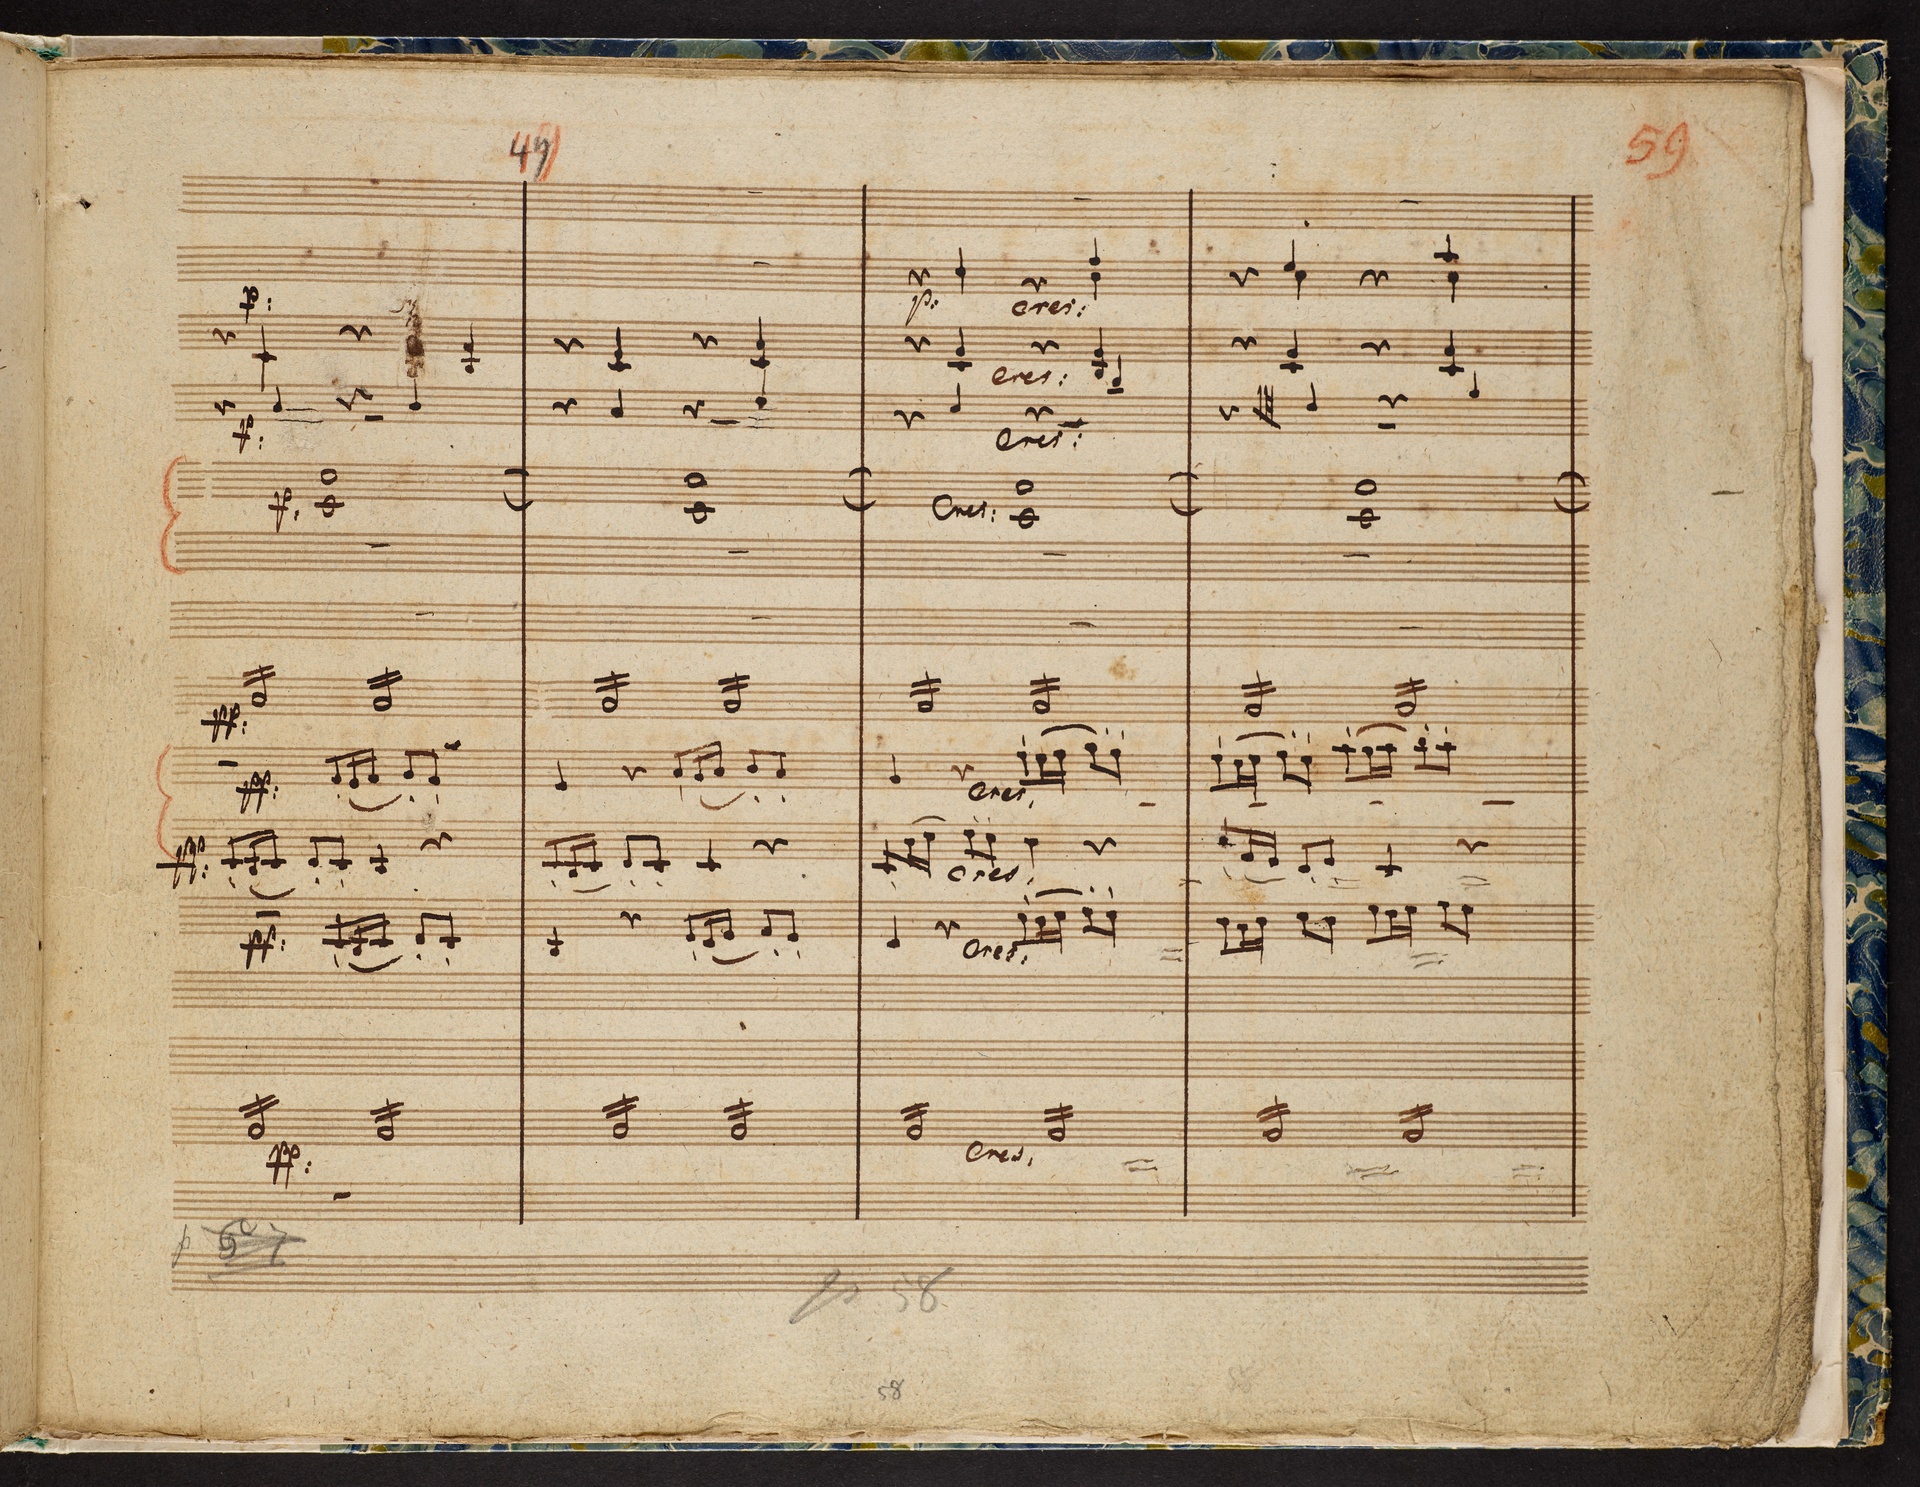 59
p:
p: cres:
cres:
p: cres:
p. Cres:
pp:
pp: cres,
pp: cres,
pp: cres,
pp: cres,
58
58